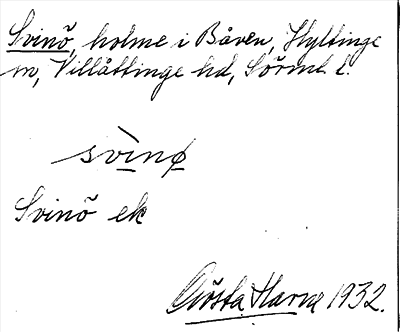 Svinö, holme i Båven, Hyltinge
sn, Villåttinge hd, Sörml. l.
svìnø
Svinö ek
Gösta Harne 1932.